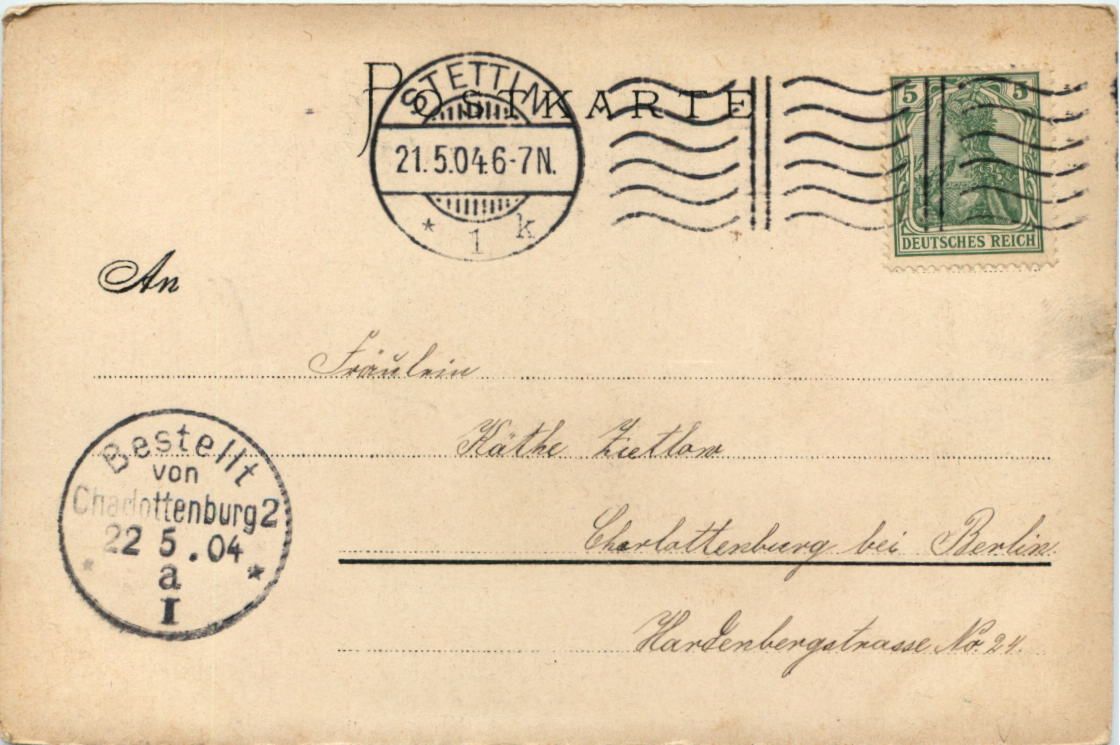 POSTKARTE
STETTIN
21.5.04.6-7N.
* 1 k
5 5
DEUTSCHES REICH
An
Fräulein
Käthe Zietlow
Bestellt
von
Charlottenburg 2
22 5.04
* a *
I
Charlottenburg bei Berlin.
Hardenbergstrasse No. 24.